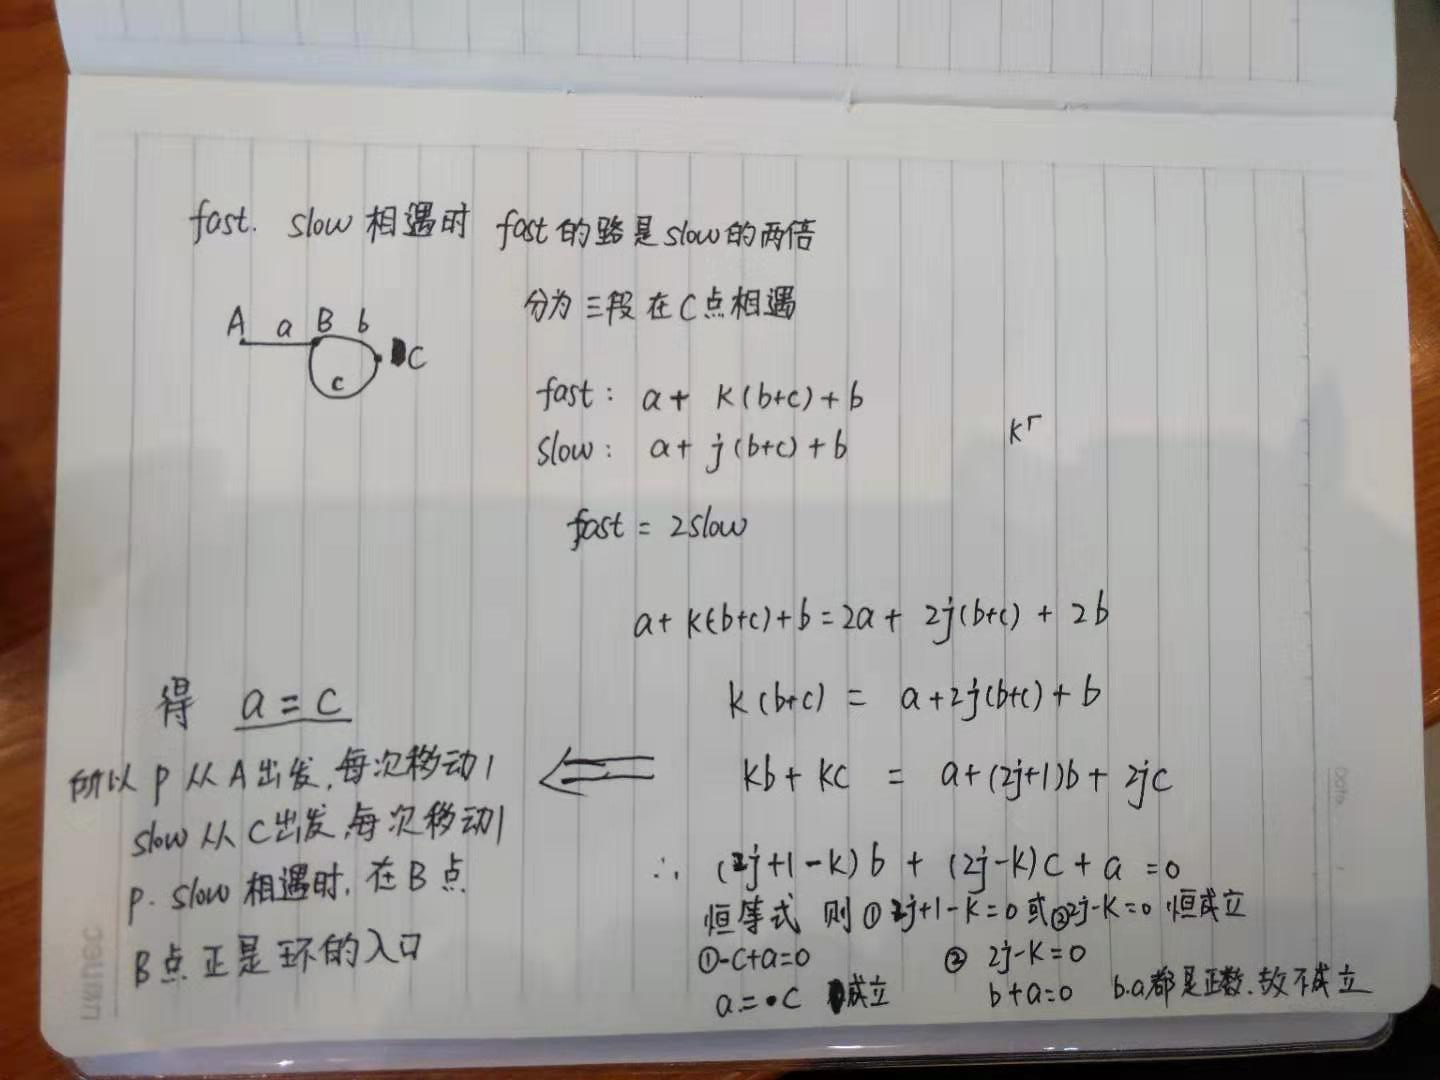 fast. slow 相遇时 fast的路是slow的两倍
分为三段 在C点相遇
A a B b C
c
fast: a+ k(b+c)+b
slow: a+ j(b+c)+b
fast = 2slow
a+ k(b+c)+b=2a+ 2j(b+c) + 2b
k(b+c) = a+2j(b+c)+b
kb+kc = a+(2j+1)b+2jc
∴ (2j+1-k)b + (2j-k)c+a =0
恒等式 则①2j+1-k=0或②2j-k=0 恒成立
①-c+a=0 ② 2j-k=0
a=c 成立 b+a=0 b.a都是正数.故不成立
得 a=c
所以 p 从A出发,每次移动1
slow 从C出发,每次移动1
p. slow 相遇时. 在B点
B点 正是环的入口